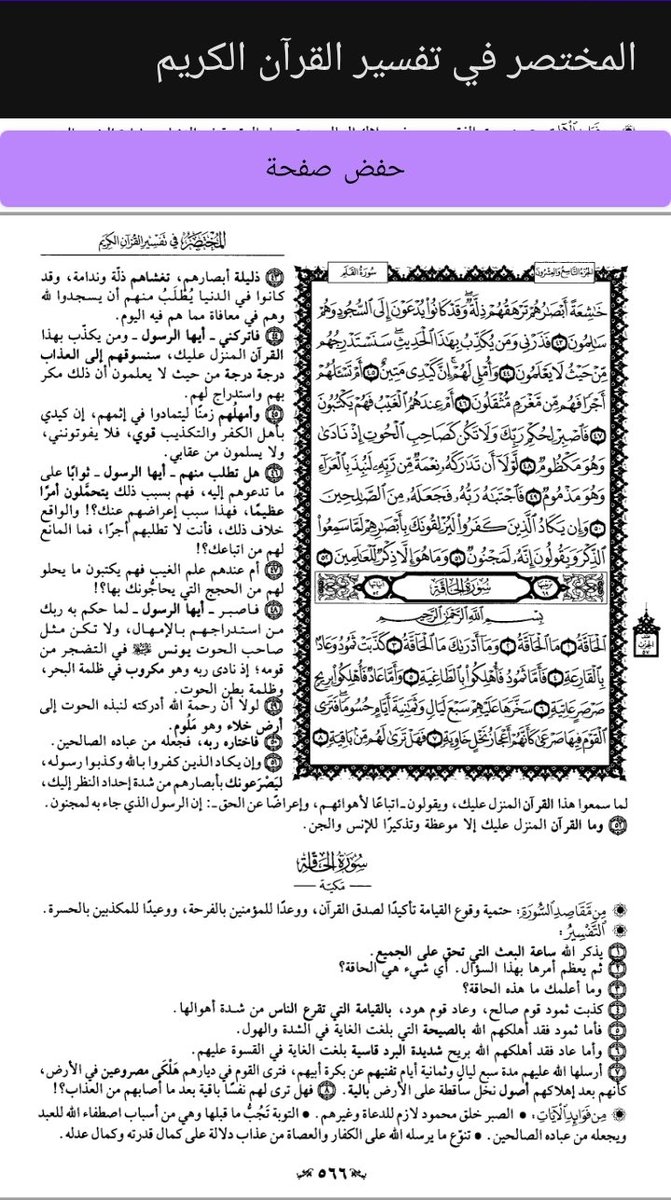 المختصر في تفسير القرآن الكريم
حفض صفحة
المختصر في تفسير القرآن الكريم
الجزء التاسع والعشرون
سورة القلم
خَٰشِعَةً أَبْصَٰرُهُمْ تَرْهَقُهُمْ ذِلَّةٌ ۖ وَقَدْ كَانُوا۟ يُدْعَوْنَ إِلَى ٱلسُّجُودِ وَهُمْ
سَٰلِمُونَ ٤٣ فَذَرْنِى وَمَن يُكَذِّبُ بِهَٰذَا ٱلْحَدِيثِ ۖ سَنَسْتَدْرِجُهُم
مِّنْ حَيْثُ لَا يَعْلَمُونَ ٤٤ وَأُمْلِى لَهُمْ ۚ إِنَّ كَيْدِى مَتِينٌ ٤٥ أَمْ تَسْـَٔلُهُمْ
أَجْرًا فَهُم مِّن مَّغْرَمٍ مُّثْقَلُونَ ٤٦ أَمْ عِندَهُمُ ٱلْغَيْبُ فَهُمْ يَكْتُبُونَ
٤٧ فَٱصْبِرْ لِحُكْمِ رَبِّكَ وَلَا تَكُن كَصَاحِبِ ٱلْحُوتِ إِذْ نَادَىٰ
وَهُوَ مَكْظُومٌ ٤٨ لَّوْلَآ أَن تَدَٰرَكَهُۥ نِعْمَةٌ مِّن رَّبِّهِۦ لَنُبِذَ بِٱلْعَرَآءِ
وَهُوَ مَذْمُومٌ ٤٩ فَٱجْتَبَٰهُ رَبُّهُۥ فَجَعَلَهُۥ مِنَ ٱلصَّٰلِحِينَ
٥٠ وَإِن يَكَادُ ٱلَّذِينَ كَفَرُوا۟ لَيُزْلِقُونَكَ بِأَبْصَٰرِهِمْ لَمَّا سَمِعُوا۟
ٱلذِّكْرَ وَيَقُولُونَ إِنَّهُۥ لَمَجْنُونٌ ٥١ وَمَا هُوَ إِلَّا ذِكْرٌ لِّلْعَٰلَمِينَ ٥٢
سورة الحاقة
بِسْمِ ٱللَّهِ ٱلرَّحْمَٰنِ ٱلرَّحِيمِ
ٱلْحَآقَّةُ ١ مَا ٱلْحَآقَّةُ ٢ وَمَآ أَدْرَىٰكَ مَا ٱلْحَآقَّةُ ٣ كَذَّبَتْ ثَمُودُ وَعَادٌۢ
بِٱلْقَارِعَةِ ٤ فَأَمَّا ثَمُودُ فَأُهْلِكُوا۟ بِٱلطَّاغِيَةِ ٥ وَأَمَّا عَادٌ فَأُهْلِكُوا۟ بِرِيحٍ
صَرْصَرٍ عَاتِيَةٍ ٦ سَخَّرَهَا عَلَيْهِمْ سَبْعَ لَيَالٍ وَثَمَٰنِيَةَ أَيَّامٍ حُسُومًا فَتَرَى
ٱلْقَوْمَ فِيهَا صَرْعَىٰ كَأَنَّهُمْ أَعْجَازُ نَخْلٍ خَاوِيَةٍ ٧ فَهَلْ تَرَىٰ لَهُم مِّنۢ بَاقِيَةٍ ٨
٤٣ ذليلة أبصارهم، تغشاهم ذلّة وندامة، وقد
كانوا في الدنيا يُطْلَبُ منهم أن يسجدوا لله
وهم في معافاة مما هم فيه اليوم.
٤٤ فاتركني - أيها الرسول - ومن يكذّب بهذا
القرآن المنزل عليك، سنسوقهم إلى العذاب
درجة درجة من حيث لا يعلمون أن ذلك مكر
بهم واستدراج لهم.
٤٥ وأمهلهم زمنًا ليتمادوا في إثمهم، إن كيدي
بأهل الكفر والتكذيب قوي، فلا يفوتونني،
ولا يسلمون من عقابي.
٤٦ هل تطلب منهم - أيها الرسول - ثوابًا على
ما تدعوهم إليه، فهم بسبب ذلك يتحمّلون أمرًا
عظيمًا، فهذا سبب إعراضهم عنك؟! والواقع
خلاف ذلك، فأنت لا تطلبهم أجرًا، فما المانع
لهم من اتباعك؟!
٤٧ أم عندهم علم الغيب فهم يكتبون ما يحلو
لهم من الحجج التي يحاجُّونك بها؟!
٤٨ فاصبر - أيها الرسول - لما حكم به ربك
من استدراجهم بالإمهال، ولا تكن مثل
صاحب الحوت يونس ﷺ في التضجر من
قومه؛ إذ نادى ربه وهو مكروب في ظلمة البحر،
وظلمة بطن الحوت.
٤٩ لولا أن رحمة الله أدركته لنبذه الحوت إلى
أرض خلاء وهو مَلُوم.
٥٠ فاختاره ربه، فجعله من عباده الصالحين.
٥١ وإن يكاد الذين كفروا بالله وكذبوا رسوله،
ليَصْرَعونك بأبصارهم من شدة إحداد النظر إليك،
لما سمعوا هذا القرآن المنزل عليك، ويقولون - اتباعًا لأهوائهم، وإعراضًا عن الحق -: إن الرسول الذي جاء به لمجنون.
٥٢ وما القرآن المنزل عليك إلا موعظة وتذكيرًا للإنس والجن.
سورة الحاقة
مكية
من مقاصد السورة: حتمية وقوع القيامة تأكيدًا لصدق القرآن، ووعدًا للمؤمنين بالفرحة، ووعيدًا للمكذبين بالحسرة.
التفسير:
١ يذكر الله ساعة البعث التي تحق على الجميع.
٢ ثم يعظم أمرها بهذا السؤال. أي شيء هي الحاقة؟
٣ وما أعلمك ما هذه الحاقة؟
٤ كذبت ثمود قوم صالح، وعاد قوم هود، بالقيامة التي تقرع الناس من شدة أهوالها.
٥ فأما ثمود فقد أهلكهم الله بالصيحة التي بلغت الغاية في الشدة والهول.
٦ وأما عاد فقد أهلكهم الله بريح شديدة البرد قاسية بلغت الغاية في القسوة عليهم.
٧ أرسلها الله عليهم مدة سبع ليالٍ وثمانية أيام تفنيهم عن بكرة أبيهم، فترى القوم في ديارهم هَلْكَى مصروعين في الأرض،
كأنهم بعد إهلاكهم أصول نخل ساقطة على الأرض بالية. ٨ فهل ترى لهم نفسًا باقية بعد ما أصابهم من العذاب؟!
من فوائد الآيات: • الصبر خلق محمود لازم للدعاة وغيرهم. • التوبة تَجُبُّ ما قبلها وهي من أسباب اصطفاء الله للعبد
ويجعله من عباده الصالحين. • تنوّع ما يرسله الله على الكفار والعصاة من عذاب دلالة على كمال قدرته وكمال عدله.
٥٦٦